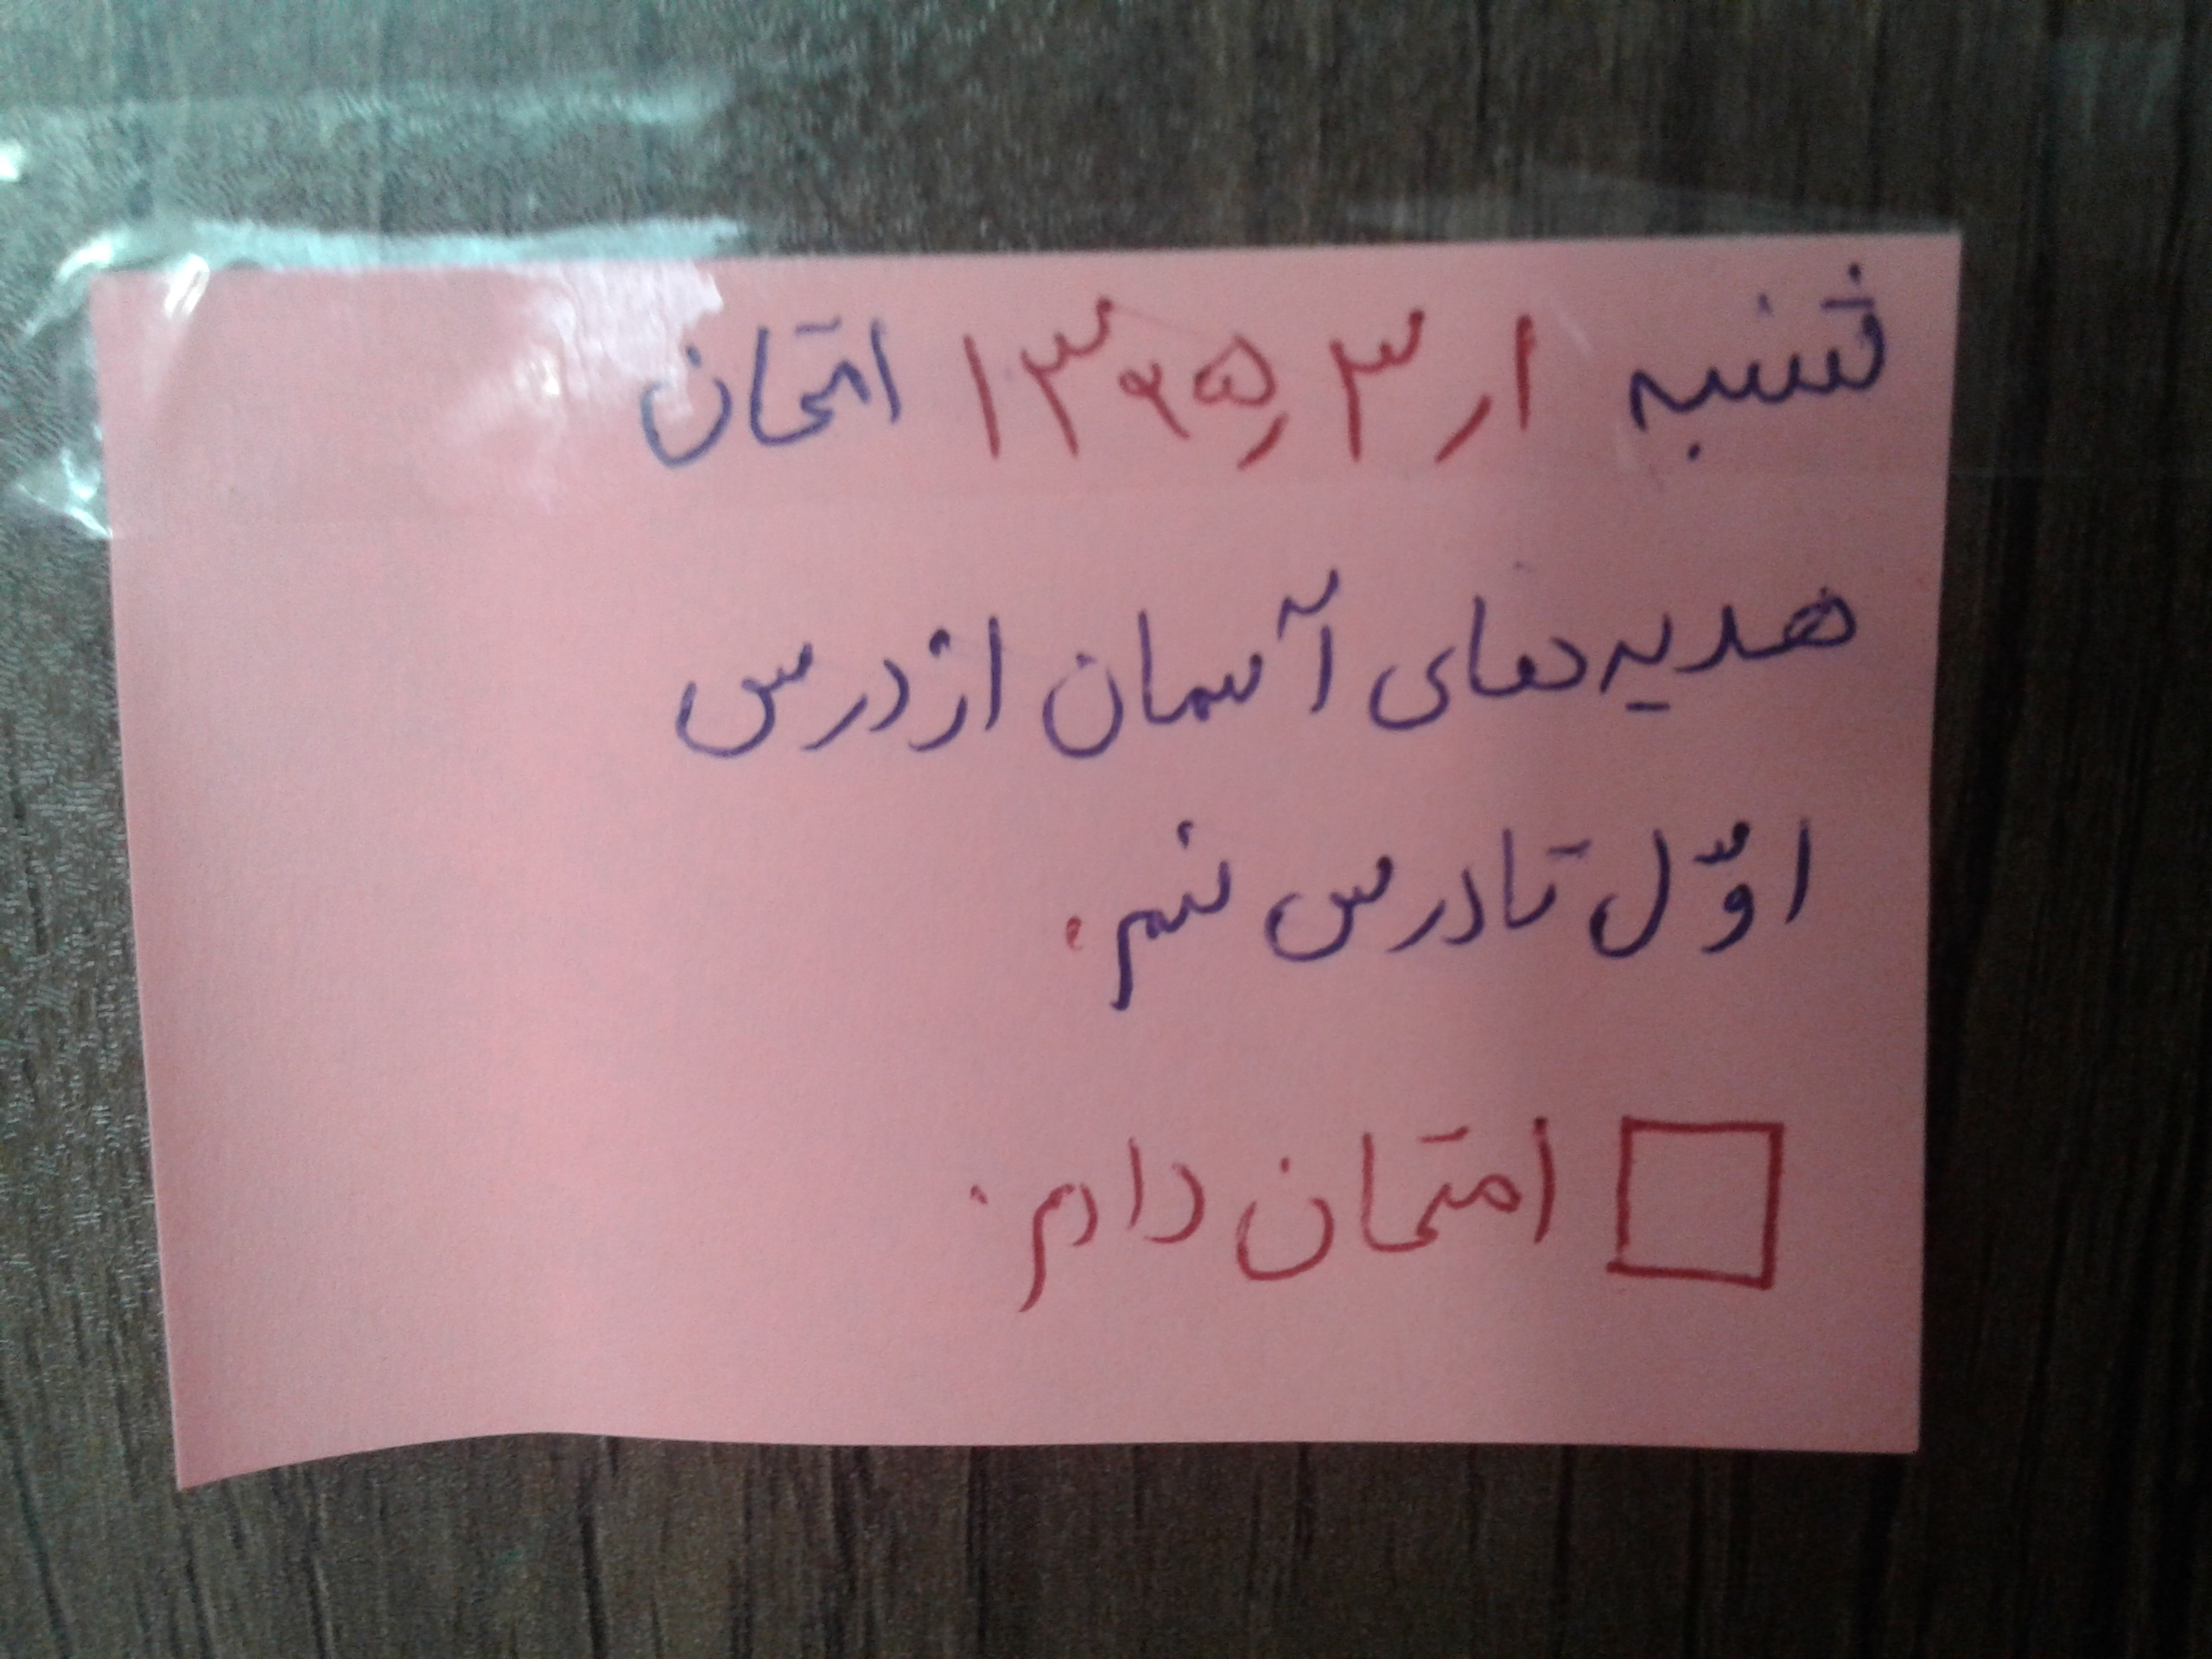 شنبه ۱ر۳ر۱۳۹۵ امتحان
هدیه‌های آسمان از درس
اوّل تا درس نهم.
امتحان دارم.